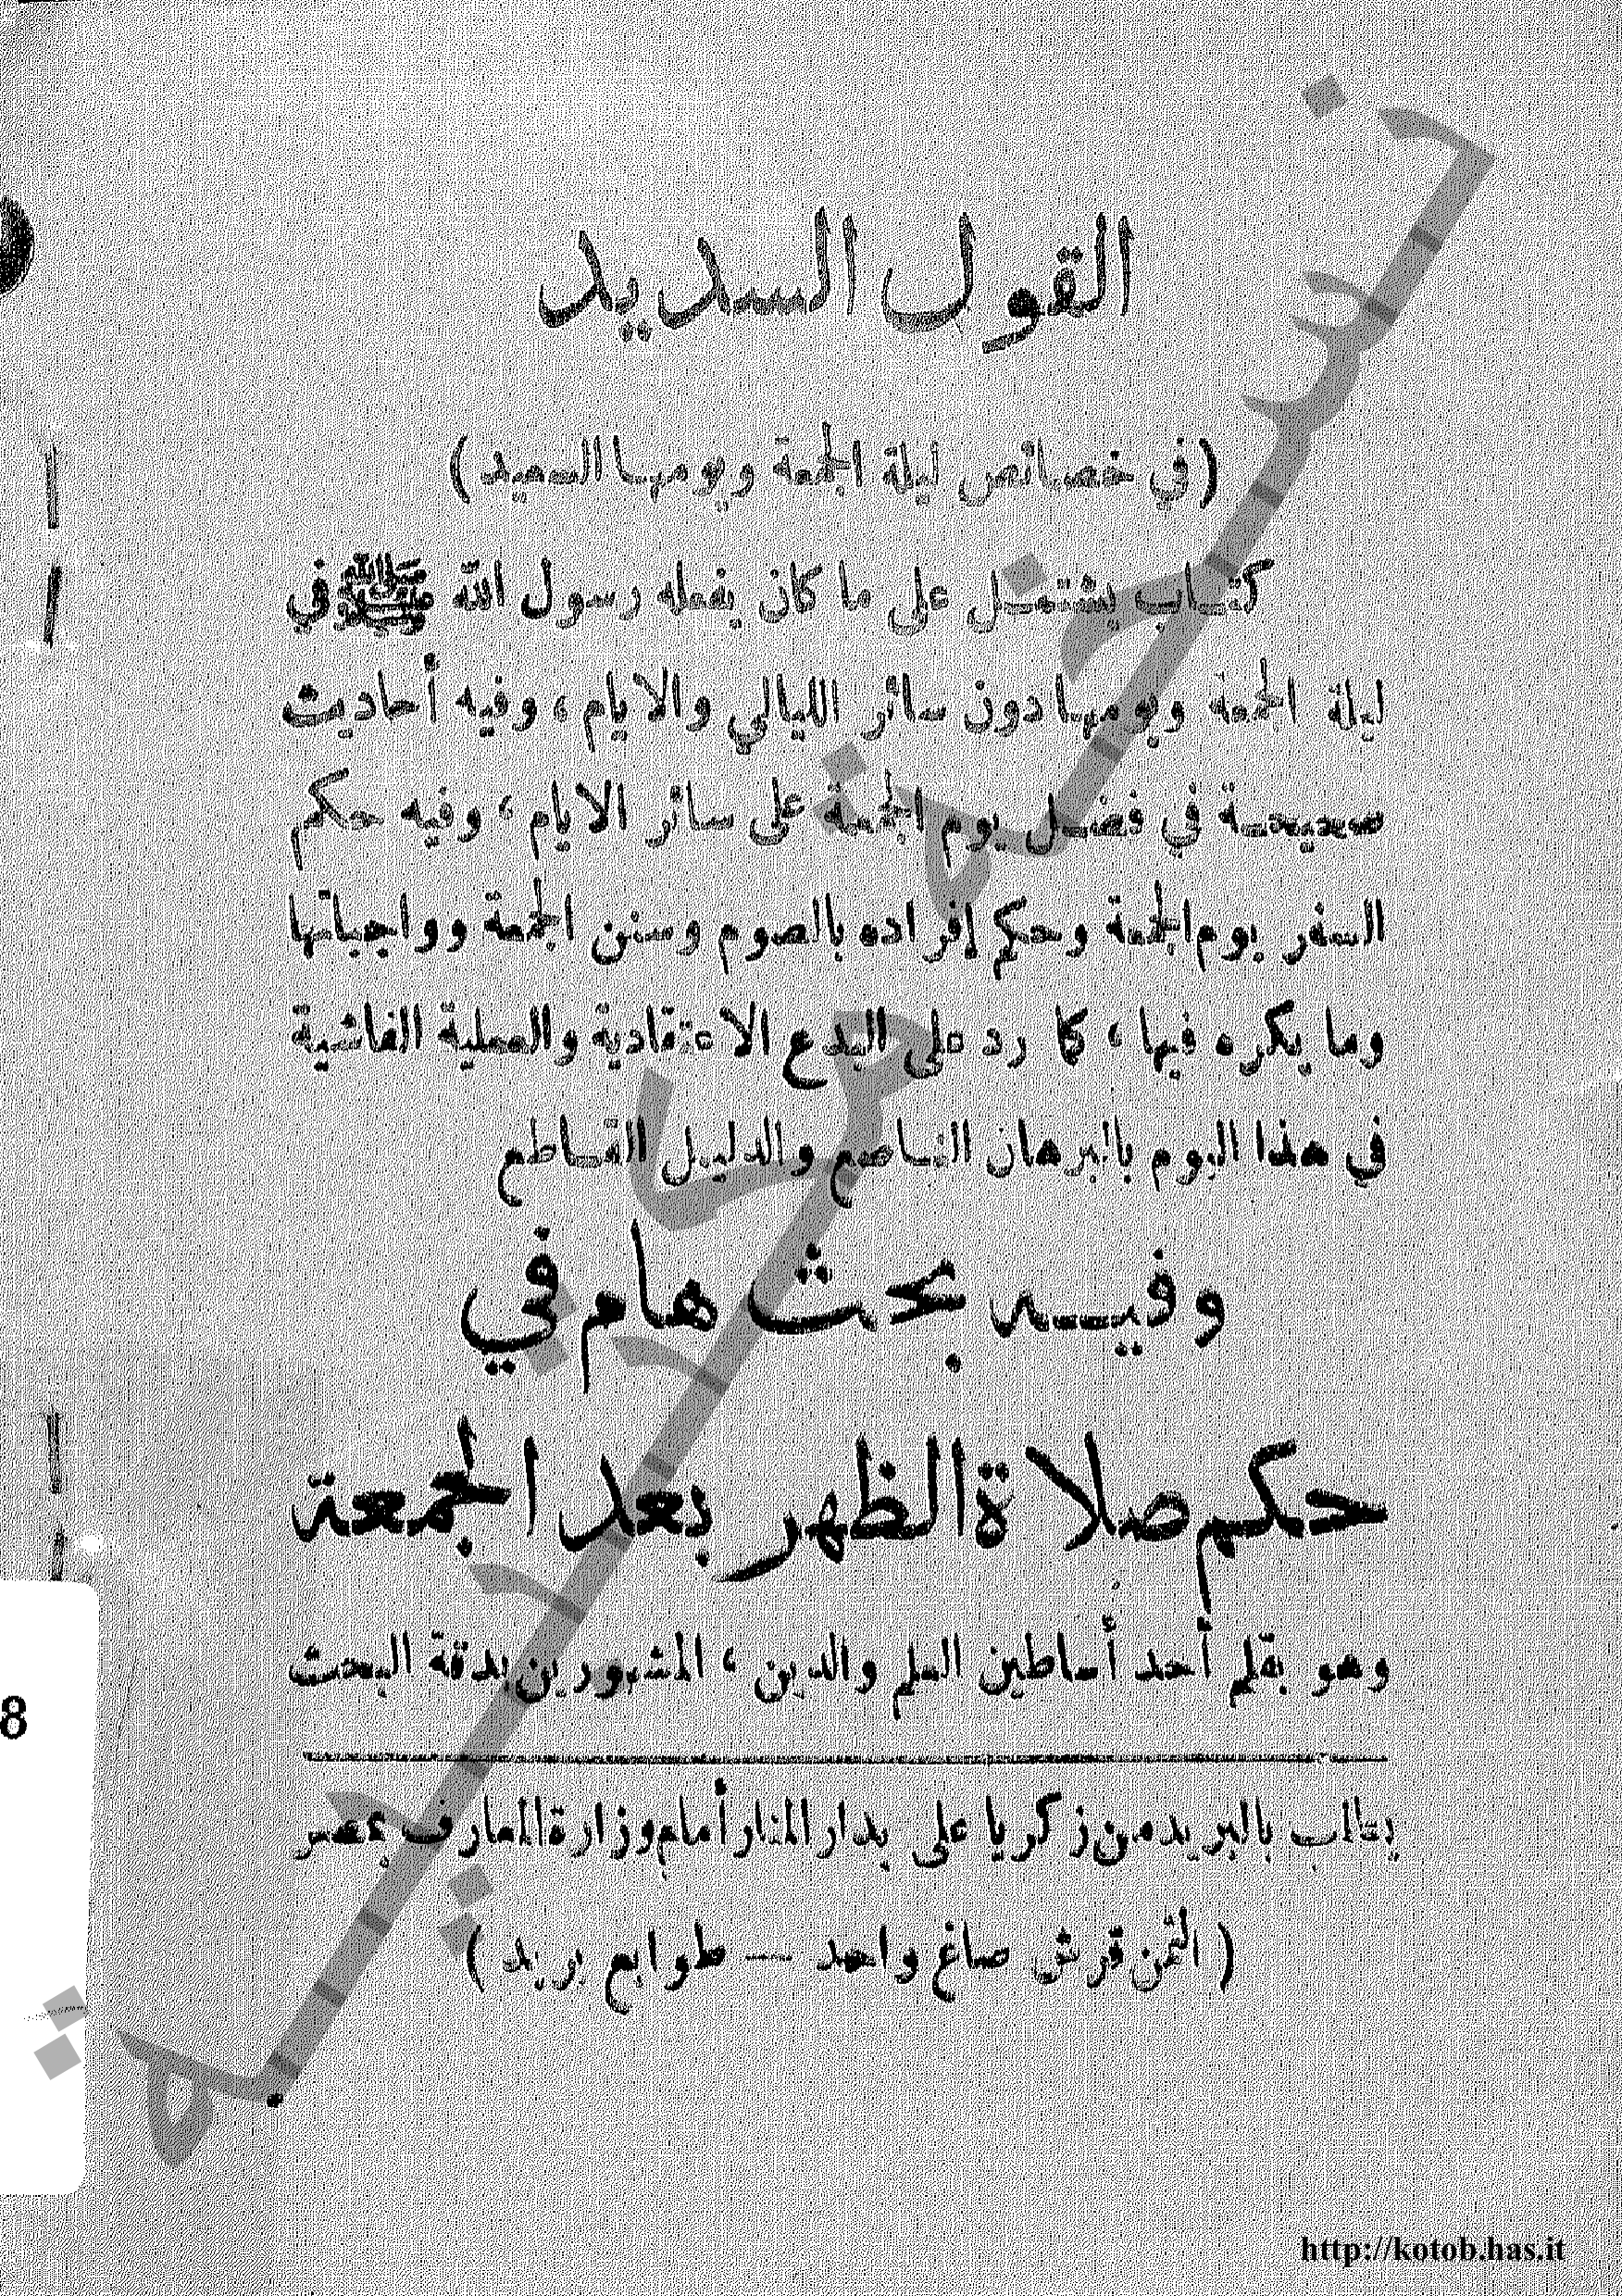 القول السديد
(في خصائص ليلة الجمعة ويومها السعيد)
كتاب يشتمل على ما كان يفعله رسول الله ﷺ في
ليلة الجمعة ويومها دون سائر الليالي والايام، وفيه أحاديث
صحيحة في فضل يوم الجمعة على سائر الايام، وفيه حكم
السفر يوم الجمعة وحكم إفراده بالصوم وسنن الجمعة وواجباتها
وما يكره فيها، كما رد على البدع الاعتقادية والعملية الفاشية
في هذا اليوم بالبرهان الناصع والدليل القاطع
وفيه بحث هام في
حكم صلاة الظهر بعد الجمعة
وهو بقلم أحد أساطين العلم والدين، المشهورين بدقة البحث
يطلب بالبريد من زكريا على بدار المنار أمام وزارة المعارف بمصر
(الثمن قرش صاغ واحد — طوابع بريد)
8
http://kotob.has.it